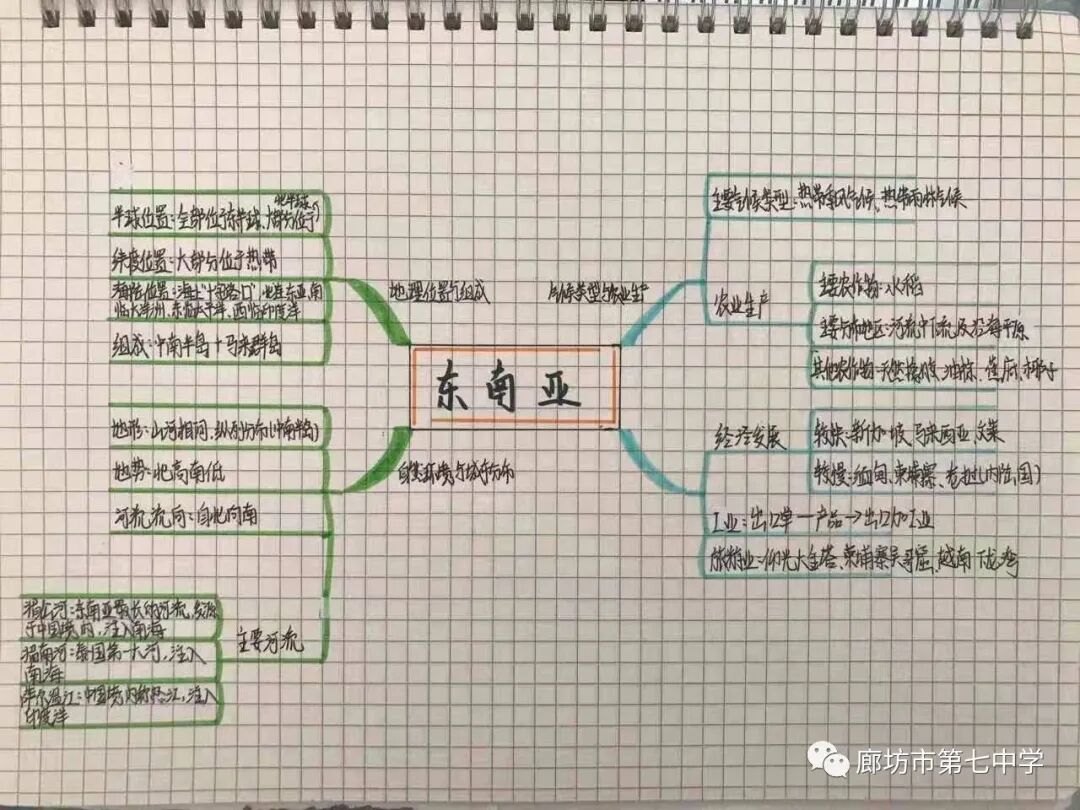 东南亚
地理位置与组成
北半球
半球位置:全部位于东半球,大部分位于
纬度位置:大部分位于热带
海陆位置:海上“十字路口”,北连东亚,南
临大洋洲、东临太平洋、西临印度洋
组成:中南半岛+马来群岛
自然环境与城市分布
地形:山河相间,纵列分布(中南半岛)
地势:北高南低
河流流向:自北向南
主要河流
湄公河:东南亚最长的河流,发源
于中国境内,注入南海
湄南河:泰国第一大河,注入
南海
萨尔温江:中国境内称怒江,注入
印度洋
气候类型与农业生产
主要气候类型:热带季风气候、热带雨林气候
农业生产
主要农作物:水稻
主要分布地区:河流中下流,及沿海平原
其他农作物:天然橡胶、油棕、蕉麻、椰子
经济发展
较快:新加坡,马来西亚,文莱
较慢:缅甸,柬埔寨、老挝(内陆国)
工业:出口单一产品→出口加工业
旅游业:仰光大金塔、柬埔寨吴哥窟、越南下龙湾
廊坊市第七中学